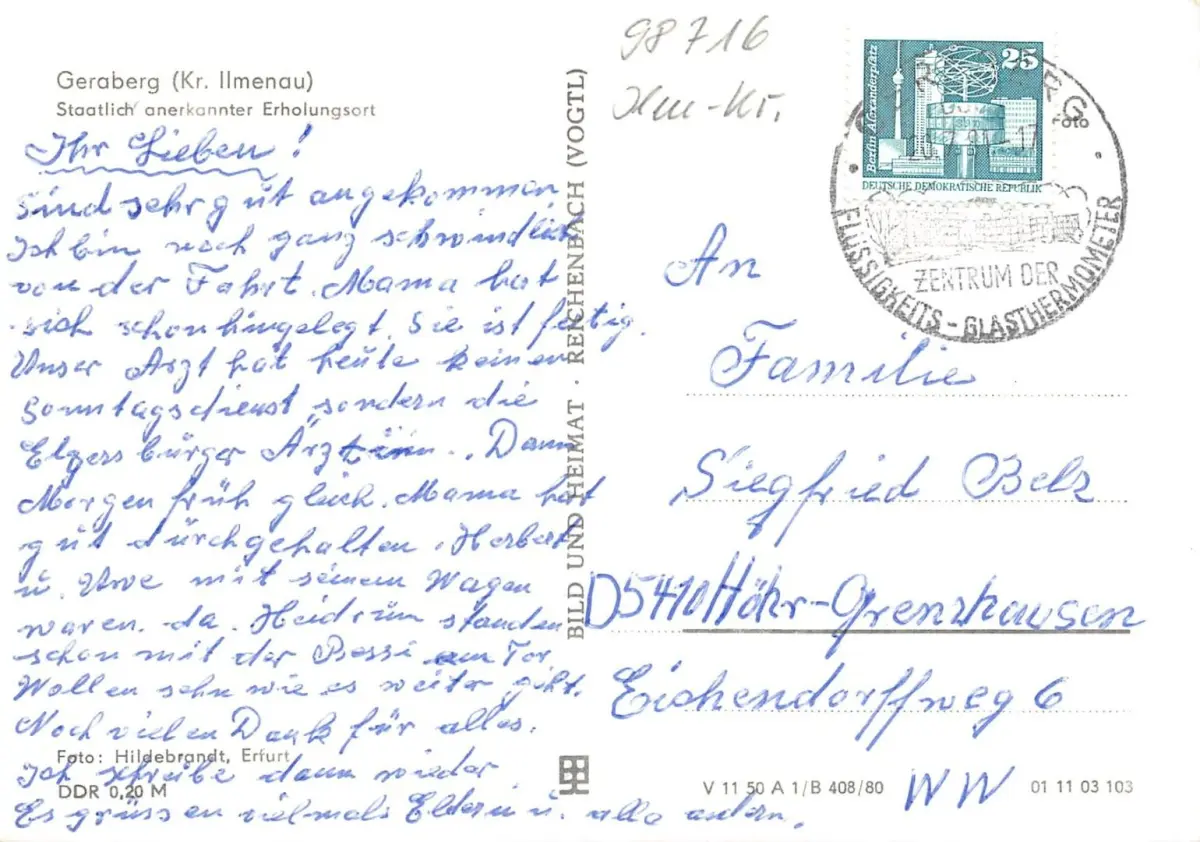 98716
Ilm-Kr.
Geraberg (Kr. Ilmenau)
Staatlich anerkannter Erholungsort
Ihr Lieben!
Sind sehr gut angekommen
Ich bin noch ganz schwindlich
von der Fahrt. Mama hat
sich schon hingelegt. Sie ist fertig.
Unser Arzt hat heute keinen
Sonntagsdienst, sondern die
Elgersbürger Ärztin. Dann
Morgen früh gleich. Mama hat
gut durchgehalten. Herbert
u. Uwe mit seinem Wagen
waren da. Heidrun standen
schon mit der Bessi am Tor
Wollen sehn wie es weiter geht.
Noch vielen Dank für alles.
Foto: Hildebrandt, Erfurt
Ich schreibe dann wieder
DDR 0,20 M
Es grüssen vielmals Eldern u. alle andern.
BILD UND HEIMAT · REICHENBACH (VOGTL)
25
Berlin Alexanderplatz
DEUTSCHE DEMOKRATISCHE REPUBLIK
Foto
ZENTRUM DER
FLÜSSIGKEITS-GLASTHERMOMETER
An
Familie
Siegfried Belz
D5410 Höhr-Grenzhausen
Eichendorffweg 6
V 11 50 A 1/B 408/80
WW
01 11 03 103